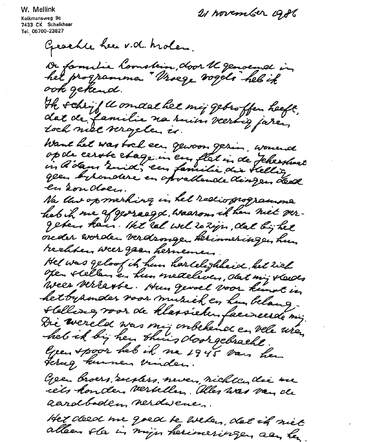 W. Mellink
Kolkmansweg 9c
7433 CK Schalkhaar
Tel. 05700-23827
21 november 1986
Geachte heer v.d. Molen.
De familie Lamstein, door U genoemd in
het programma "Vroege Vogels" heb ik
ook gekend.
Ik schrijf U omdat het mij getroffen heeft,
dat de familie na ruim veertig jaren
toch niet vergeten is.
Want het was toch een gewoon gezin, wonend
op de eerste etage in een flat in de
in A'dam Zuid, een familie die stellig
geen byzondere en opvallende dingen deed
en zou doen.
Na Uw opmerking in het radioprogramma
heb ik me afgevraagd, waarom ik hen niet ver-
geten kan. Het zal wel zo zijn, dat bij het
ouder worden verdrongen herinneringen hun
rechten weer gaan hernemen.
Het was geloof ik hun hartelijkheid, het zich
open stellen en hun medeleven, dat mij steeds
weer verraste. Hun gevoel voor kunst in
het byzonder voor muziek en hun belang-
stelling voor de klassieken fascineerde mij.
Die wereld was mij onbekend en vele uren
heb ik bij hen thuis doorgebracht.
Geen spoor heb ik na 1945 van hen
terug kunnen vinden.
Geen broers, zusters, neven, nichten die me
iets konden vertellen. Alles was van de
aardbodem verdwenen.
Het deed me goed te weten, dat ik niet
alleen sta in mijn herinneringen aan hen.